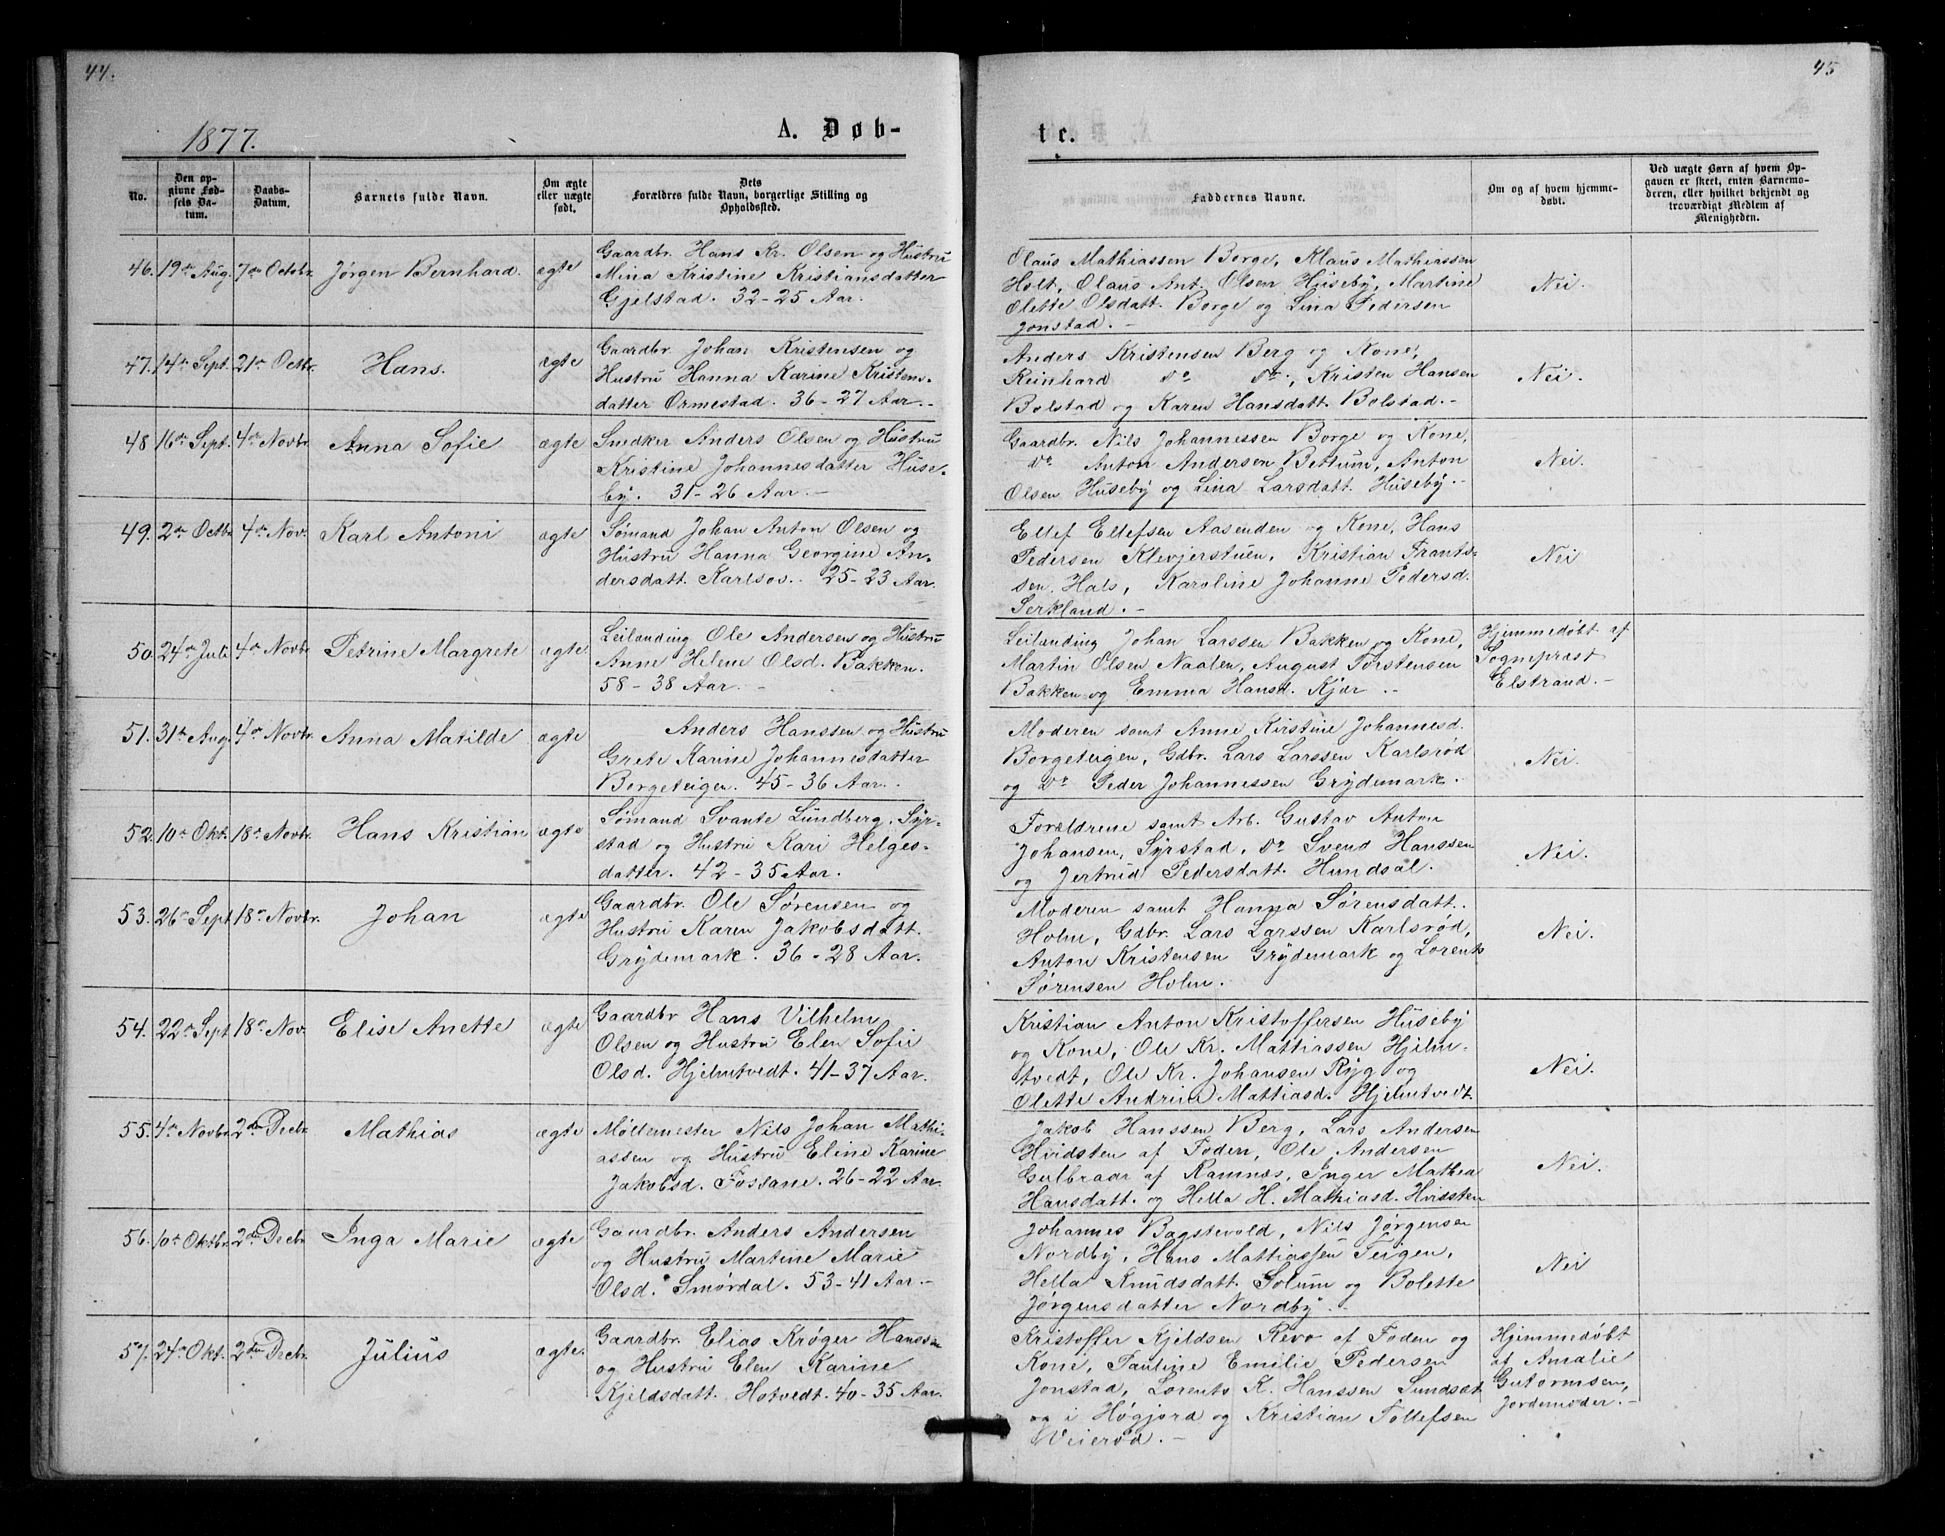 44.
1877.
A. Døb-
No.
Den op-
givne Fød-
sels Da-
tum.
Daabs-
Datum.
Barnets fulde Navn.
Om ægte
eller uægte
født.
Dets
Forældres fulde Navn, borgerlige Stilling og
Opholdssted.
46. 19de Aug. 7de Octobr. Jørgen Bernhard. ægte
Gaardbr. Hans Kr. Olsen og Hustru
Mina Kristine Kristiansdatter
Gjelstad. 32-25 Aar.
47. 14de Sept. 21de Octbr. Hans. ægte
Gaardbr. Johan Kristensen og
Hustru Hanna Karine Kristens-
datter Ormestad. 36-27 Aar.-
48 16de Sept. 4de Novbr. Anna Sofie ægte
Snedker Anders Olsen og Hustru
Kristine Johannesdatter Huse-
by. 31-26 Aar.-
49. 2de Octbr. 4de Nov. Karl Antoni ægte
Sømand Johan Anton Olsen og
Hustru Hanna Georgine An-
dersdatt. Karlsøs. 25-23 Aar.
50. 24de Juli 4de Novbr. Petrine Margrete ægte
Leilending Ole Andersen og Hustru
Anne Helene Olsd. Bakken.
58-38 Aar. -
51. 31te Aug. 4de Novbr. Anna Matilde ægte
Anders Hanssen og Hustru
Grete Karine Johannesdatter
Borgeteigen. 45-36 Aar.
52. 10de Okt. 18de Novbr. Hans Kristian ægte
Sømand Svante Lundberg. Syr-
stad og Hustru Kari Helges-
datter. 42-35 Aar.
53. 26de Sept. 18de Novbr. Johan ægte
Gaardbr. Ole Sørensen og
Hustru Karen Jakobsdatt.
Grydemark. 36-28 Aar.
54. 22de Sept. 18de Nov. Elise Anette ægte
Gaardbr Hans Vilhelm
Olsen og Hustru Elen Sofie
Olsd. Hjelmtvedt. 41-37 Aar.
55. 4de Novbr. 2den Decbr. Mathias ægte
Møllemester Nils Johan Mathi-
assen og Hustru Eline Karine
Jakobsd. Fossane. 26-22 Aar.
56. 10de Oktbr. 2den Decbr. Inga Marie ægte
Gaardbr. Anders Andersen
og Hustru Martine Marie
Olsd. Smørdal. 53-41 Aar.-
57. 24de Okt. 2den Decbr. Julius ægte.
Gaardbr. Elias Krøger Hanssen
og Hustru Elen Karine
Kjeldsdatt. Hotvedt. 40-35 Aar.
45
te.
Faddernes Navne.
Om og af hvem hjemme-
døbt.
Ved uægte Børn af hvem Op-
gaven er skeet, enten Barnemo-
deren, eller hvilket bekjendt og
troværdigt Medlem af
Menigheden.
Olaus Mathiassen Borge, Klaus Mathiassen
Holt, Olaus Ant. Olsen Huseby, Martine
Olette Olsdatt. Borge og Lina Pedersen
Jonstad.-
Nei.
Anders Kristensen Berg og Kone,
Reinhard do do, Kristen Hansen
Bolstad og Karen Hansdatt. Bolstad.-
Nei.
Gaardbr. Nils Johannessen Borge og Kone,
do Anton Andersen Bettum, Anton
Olsen Huseby og Lina Larsdatt. Huseby.-
Nei.
Ellef Ellefsen Aasenden og Kone, Hans
Pedersen Klevjerstuen, Kristian Frants-
sen Hals, Karoline Johanne Pedersd.
Serkland.-
Nei
Leilending Johan Larssen Bakken og Kone,
Martin Olsen Naalen, August Torstensen
Bakken og Emma Hansd. Kjær.-
Hjemmedøbt af
Sognepræst
Elstrand.-
Moderen samt Anne Kirstine Johannesd.
Borgeteigen, Gdbr. Lars Larssen Karlsrød
og do Peder Johannessen Grydemark.
Nei.
Forældrene samt Arb. Gustav Anton
Johansen, Syrstad, do Svend Hanssen
og Jertrud Pedersdatt. Hundsal.
Nei.
Moderen samt Hanna Sørensdatt.
Holm, Gdbr. Lars Larssen Karlsrød,
Anton Kristensen Grydemark og Lorents
Sørensen Holm.
Nei.
Kristian Anton Kristoffersen Huseby
og Kone, Ole Kr. Mattiassen Hjelm-
tvedt, Ole Kr. Johansen Ryg og
Olette Andrine Mattiasd. Hjelmtvedt.
Nei.
Jakob Hanssen Berg, Lars Andersen
Hvidsten af Foden, Ole Andersen
Gulbraar af Ramnæs, Inger Mathea
Hansdatt. og Hella H. Mathiasd. Hvissten
Nei.
Johannes Bagstevold, Nils Jørgensen
Nordby, Hans Mattiassen Teigen,
Hella Knudsdatt. Solum og Bolette
Jørgensdatter Nordby.-
Nei
Kristoffer Kjeldsen Revo af Foden og
Kone, Pauline Emilie Pedersen
Jonstad, Lorents K. Hanssen Sundsæt
og i Høgjord og Kristian Tollefsen
Weierød.-
Hjemmedøbt
af Amalie
Gutormsen,
Jordemoder.-